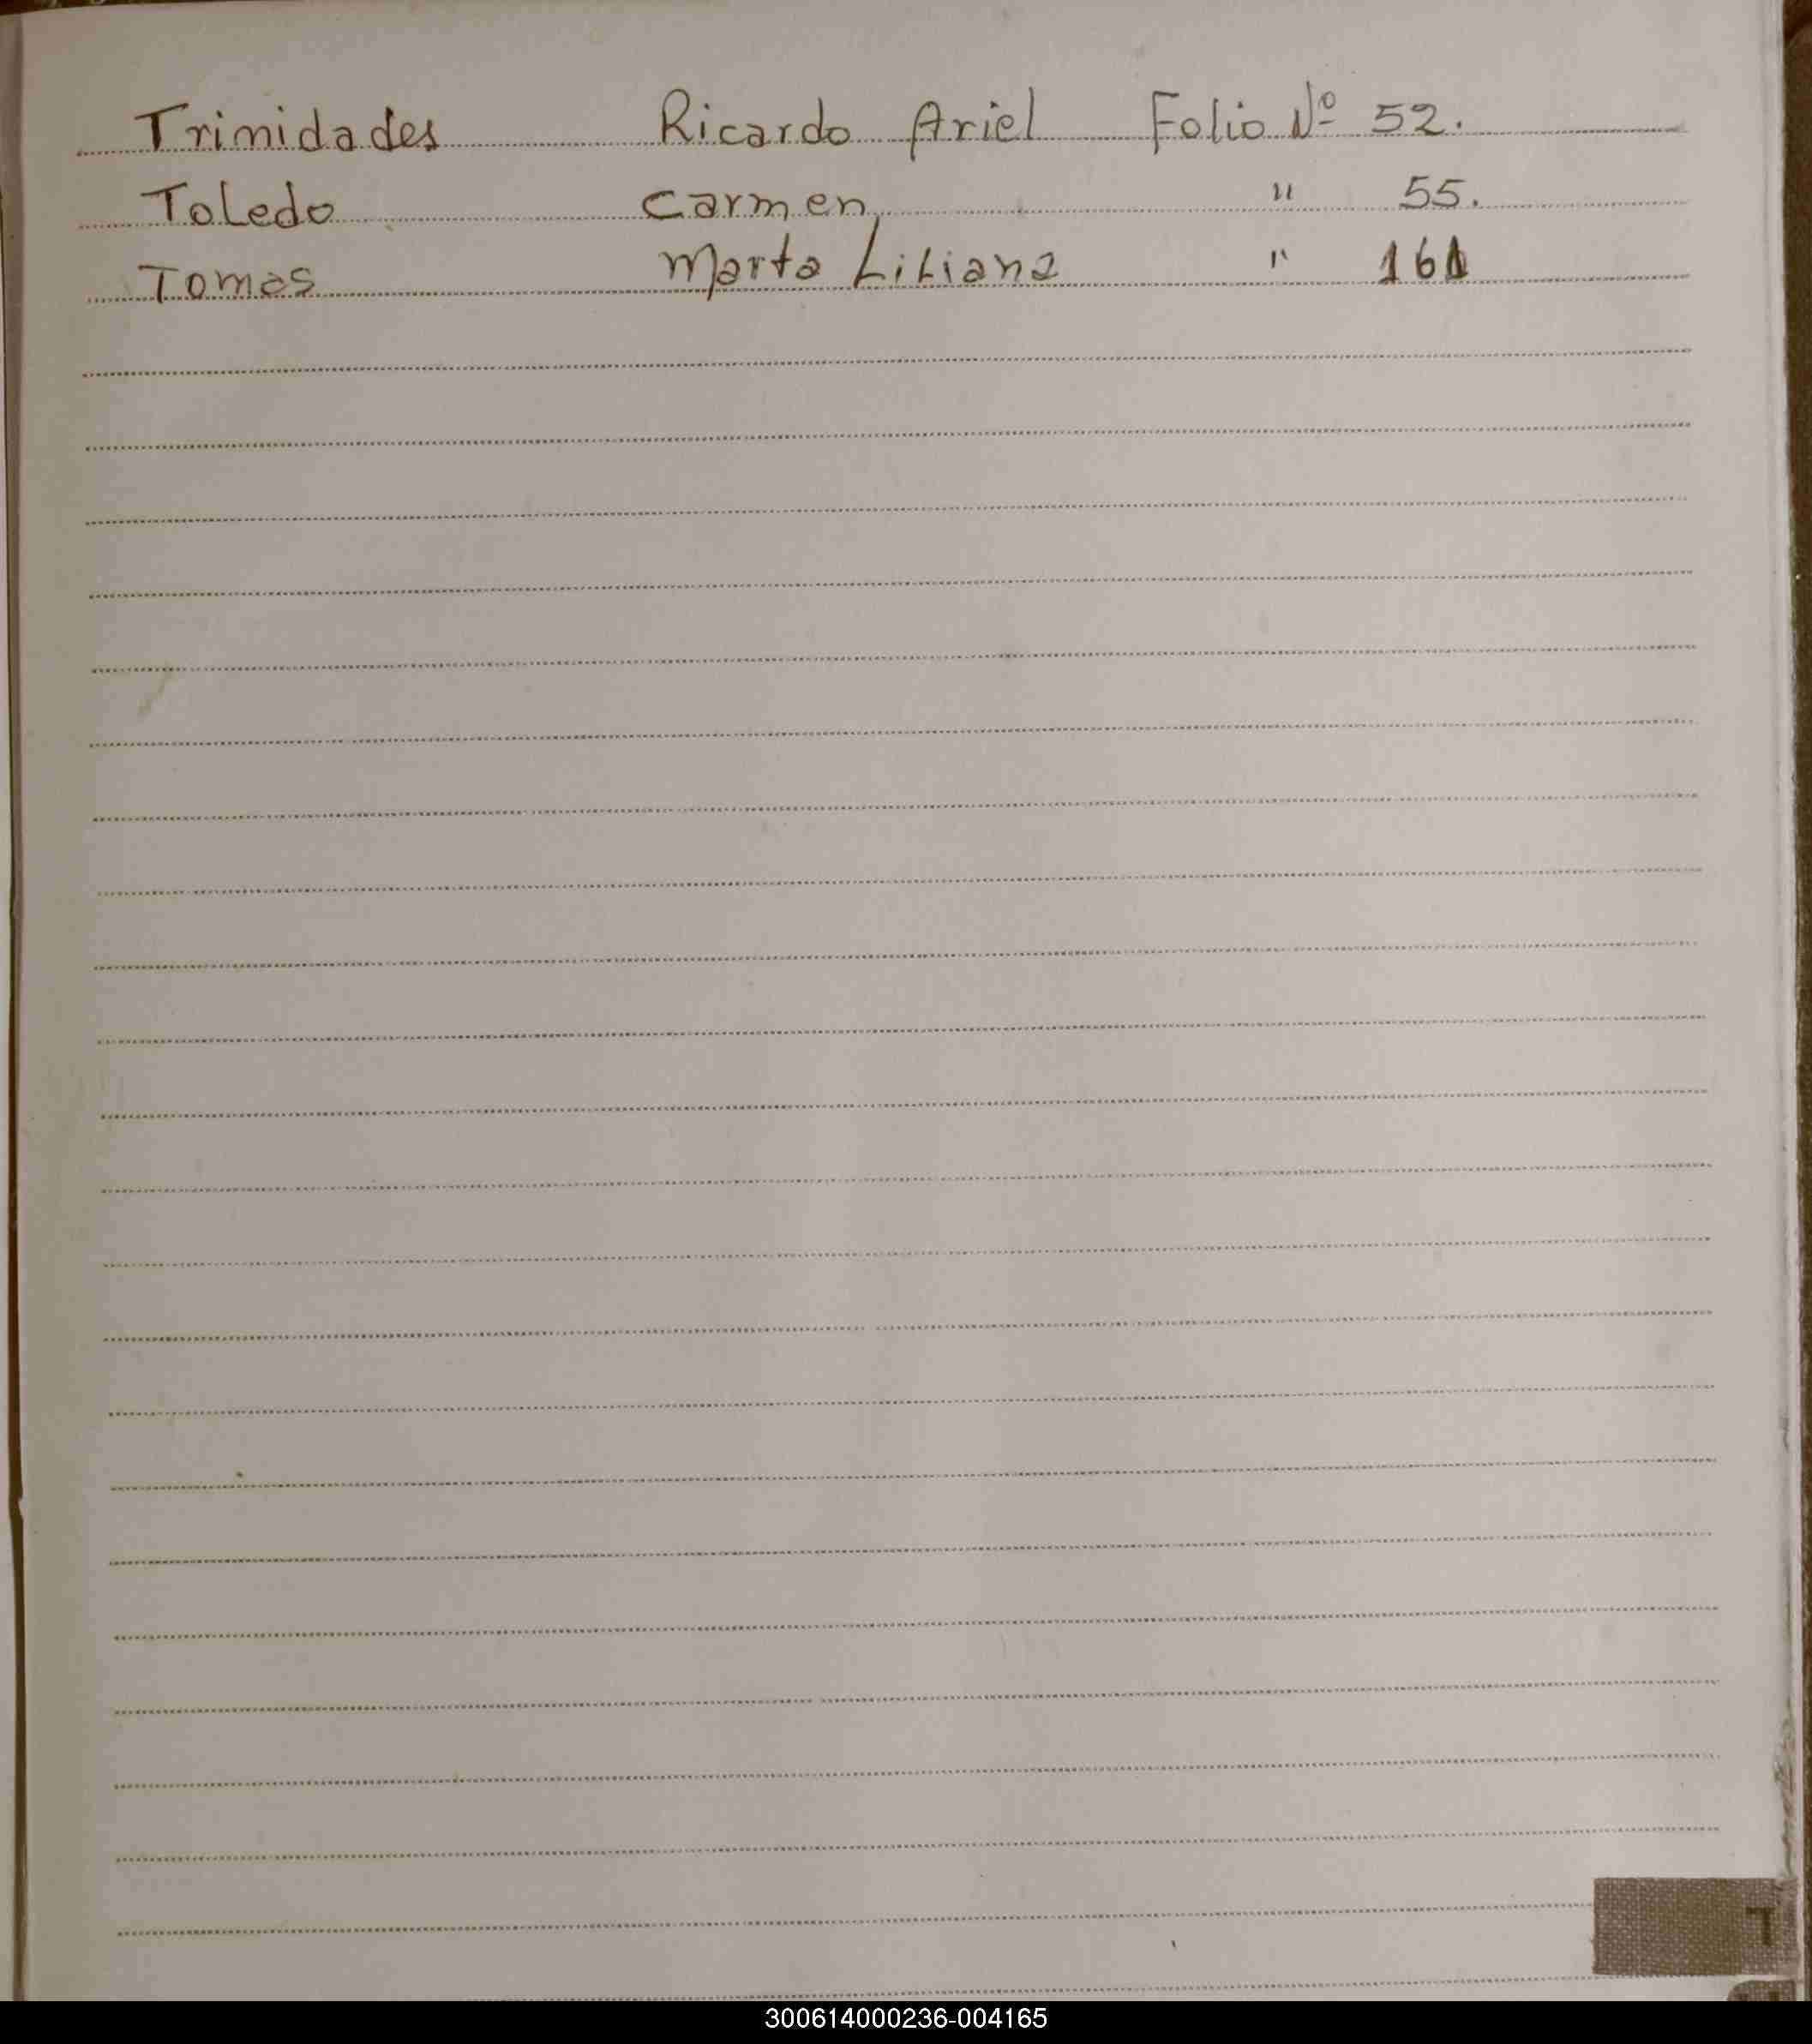 Trinidades Ricardo Ariel Folio Nº 52.
Toledo Carmen " 55.
Tomas Marta Liliana " 161
T
300614000236-004165